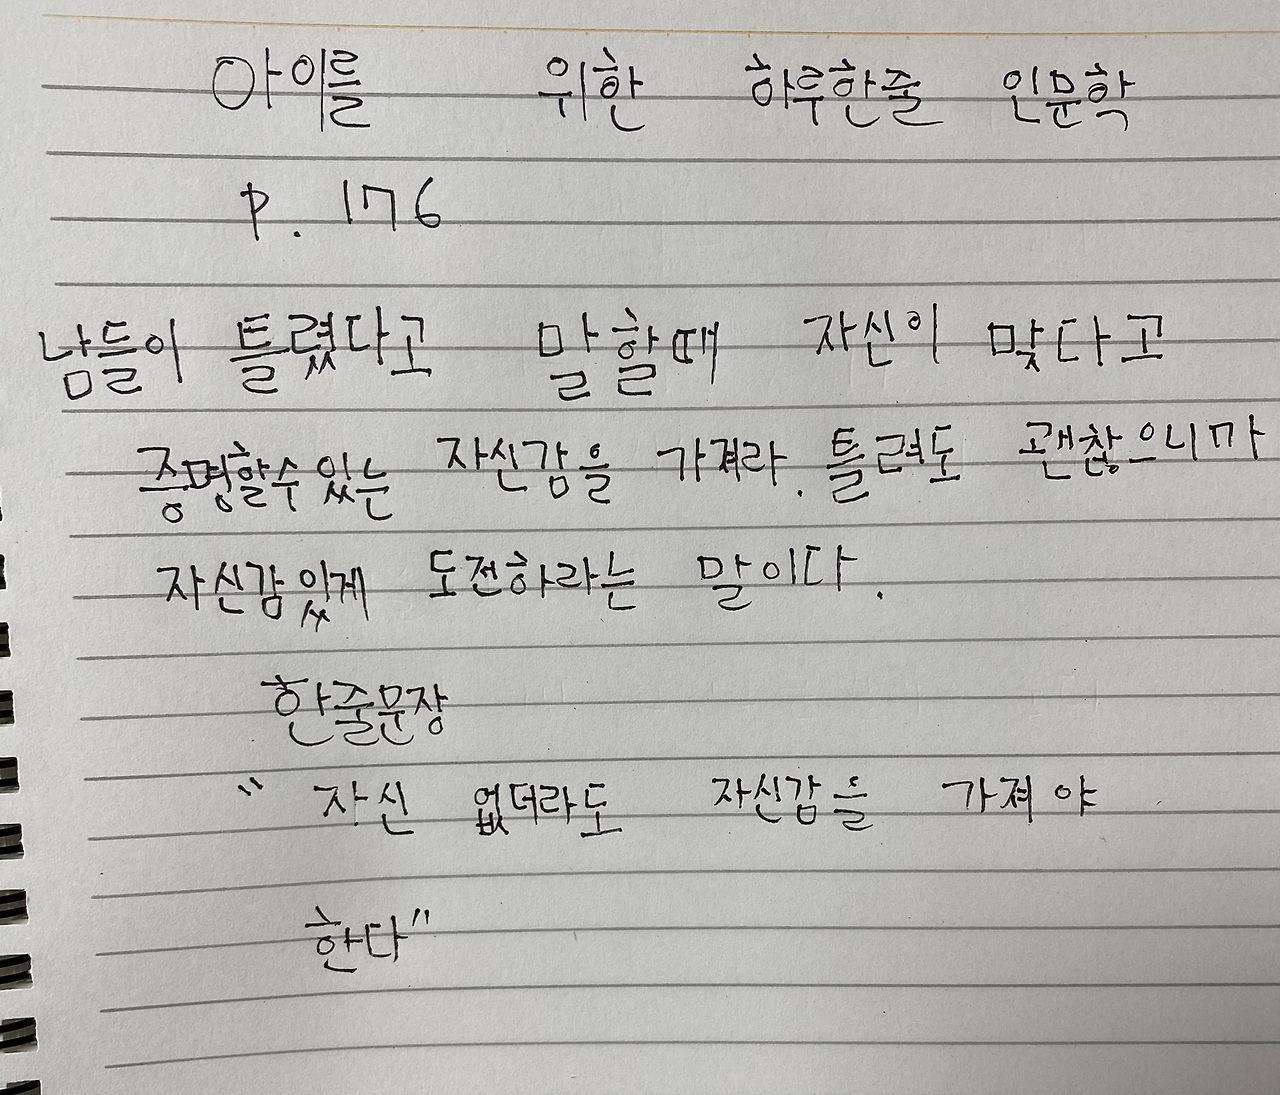 아이를 위한 하루한줄 인문학
p. 176
남들이 틀렸다고 말할때 자신이 맞다고
증명할수있는 자신감을 가져라. 틀려도 괜찮으니까
자신감있게 도전하라는 말이다.
한줄문장
"자신 없더라도 자신감을 가져야
한다"